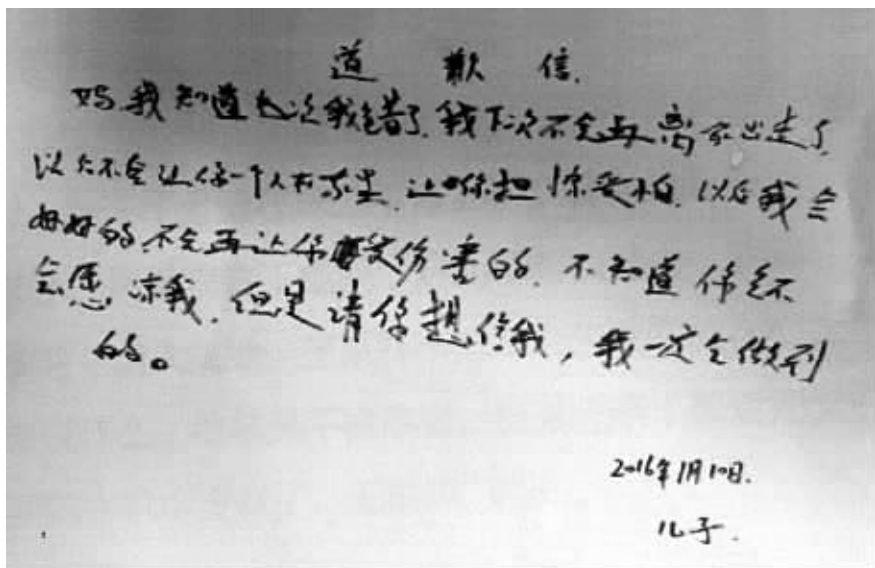 道歉信.
妈我知道这次我错了.我下次不会再离家出走了.
以后不会让你一个人在家里.让你担惊受怕.以后我会
好好的不会再让你受伤害的.不知道你会不
会愿谅我.但是请你想信我，我一定会做到
的。
2016年1月10日.
儿子.